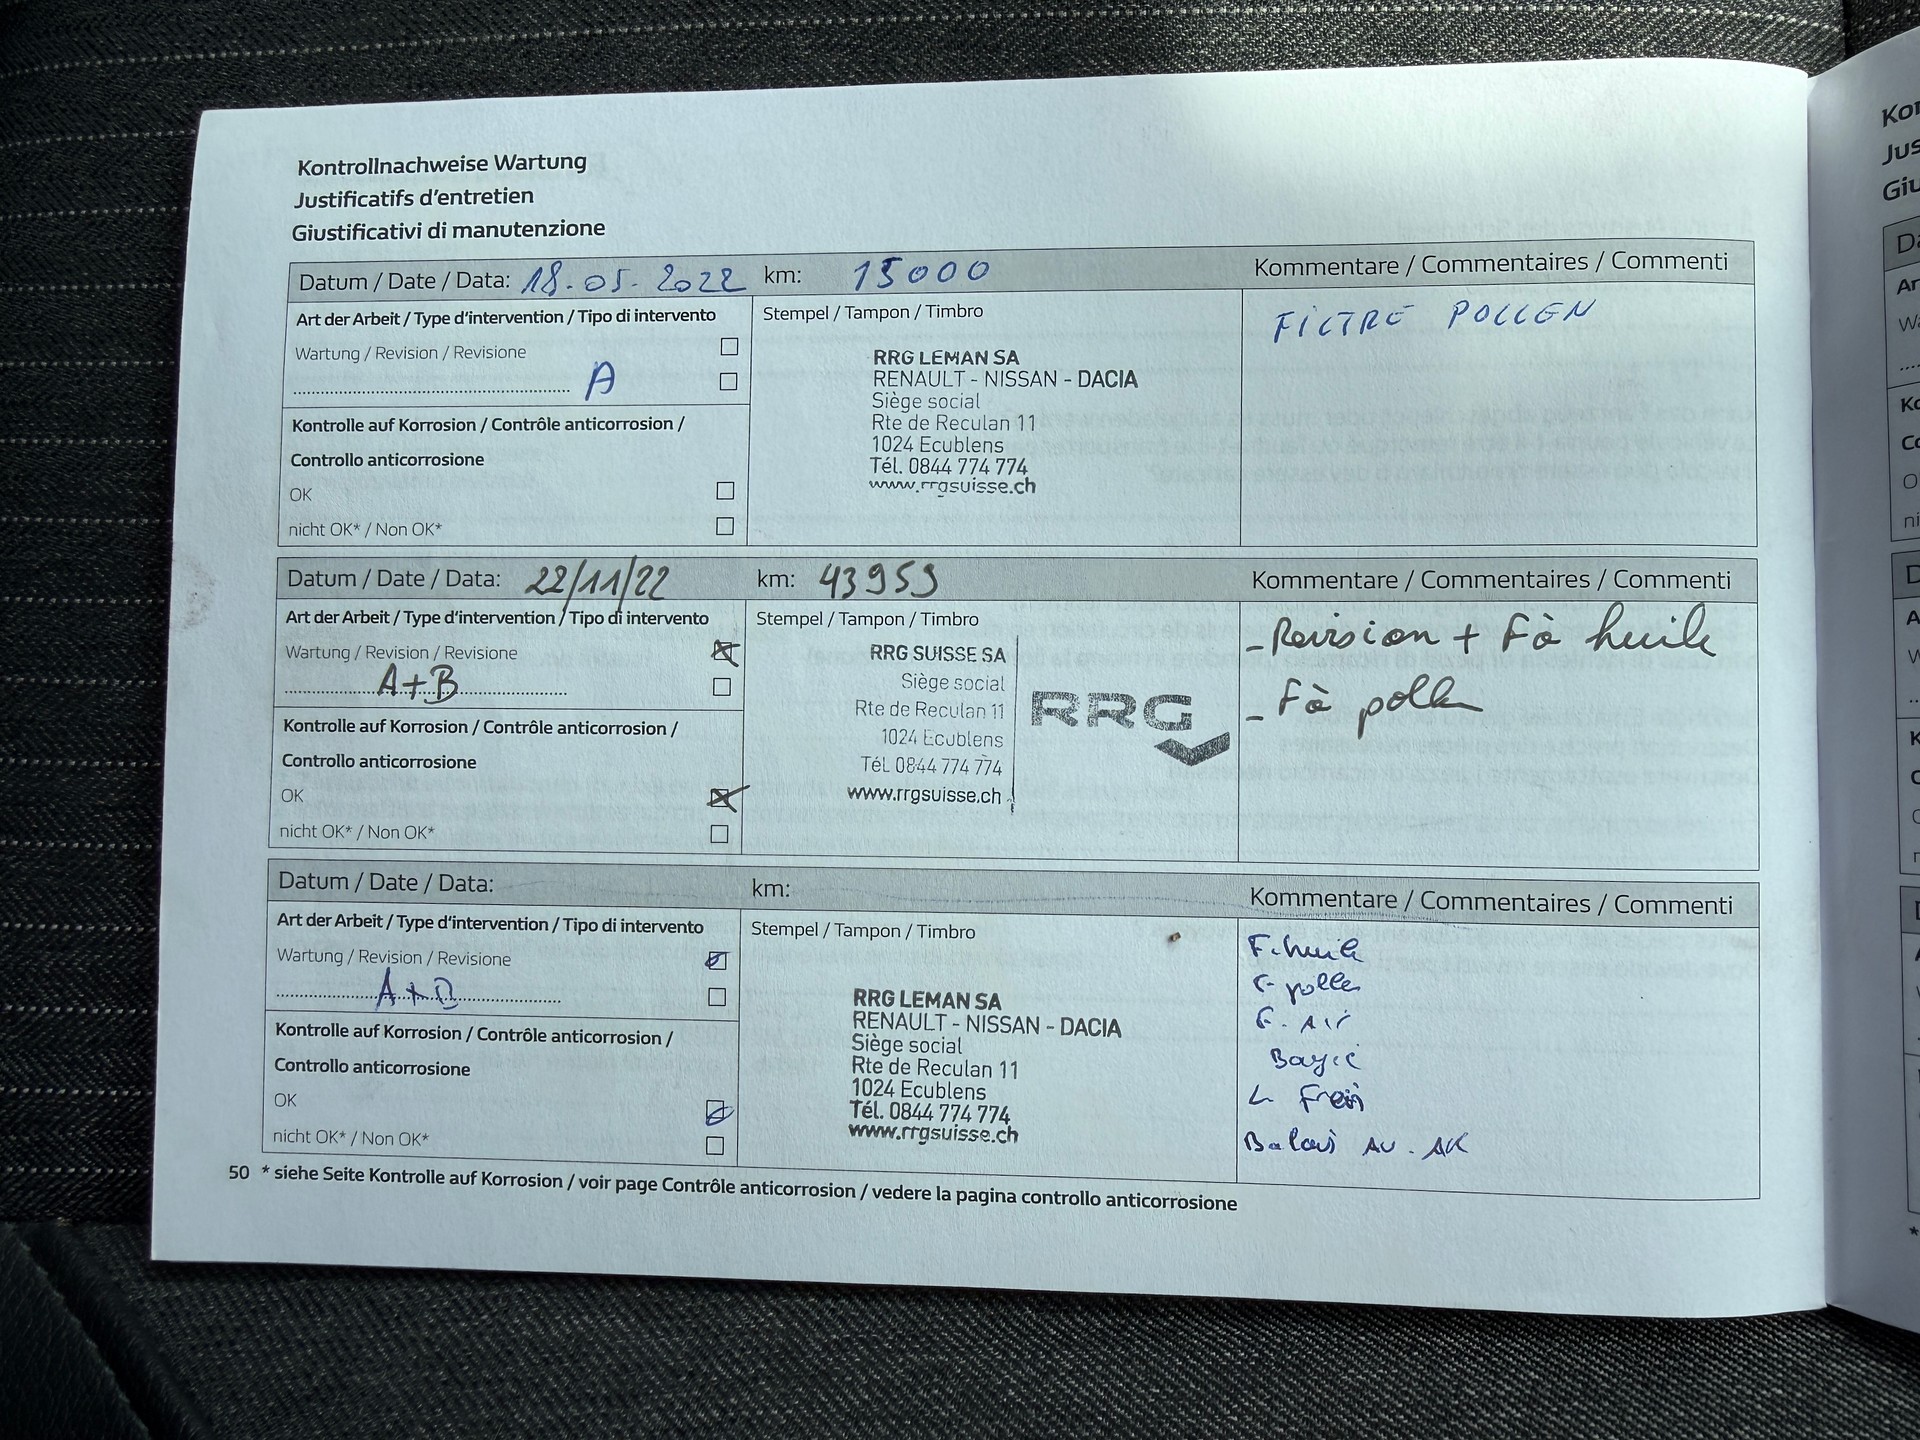 Kontrollnachweise Wartung
Justificatifs d'entretien
Giustificativi di manutenzione
Datum / Date / Data: 18.05.2022 km: 15000 Kommentare / Commentaires / Commenti
Art der Arbeit / Type d'intervention / Tipo di intervento
Stempel / Tampon / Timbro
FILTRE POLLEN
Wartung / Revision / Revisione
A
RRG LEMAN SA
RENAULT - NISSAN - DACIA
Siège social
Rte de Reculan 11
1024 Ecublens
Tél. 0844 774 774
www.rrgsuisse.ch
Kontrolle auf Korrosion / Contrôle anticorrosion /
Controllo anticorrosione
OK
nicht OK* / Non OK*
Datum / Date / Data: 22/11/22 km: 43959 Kommentare / Commentaires / Commenti
Art der Arbeit / Type d'intervention / Tipo di intervento
Stempel / Tampon / Timbro
- Revision + Fà huile
- Fà pollen
Wartung / Revision / Revisione
A+B
RRG SUISSE SA
Siège social
Rte de Reculan 11
1024 Ecublens
Tél. 0844 774 774
www.rrgsuisse.ch
RRG
Kontrolle auf Korrosion / Contrôle anticorrosion /
Controllo anticorrosione
OK
nicht OK* / Non OK*
Datum / Date / Data: km: Kommentare / Commentaires / Commenti
Art der Arbeit / Type d'intervention / Tipo di intervento
Stempel / Tampon / Timbro
Wartung / Revision / Revisione
RRG LEMAN SA
RENAULT - NISSAN - DACIA
Siège social
Rte de Reculan 11
1024 Ecublens
Tél. 0844 774 774
www.rrgsuisse.ch
F. huile
F. pollen
F. Air
L Frein
Balais AV. AR
Kontrolle auf Korrosion / Contrôle anticorrosion /
Controllo anticorrosione
OK
nicht OK* / Non OK*
50 * siehe Seite Kontrolle auf Korrosion / voir page Contrôle anticorrosion / vedere la pagina controllo anticorrosione